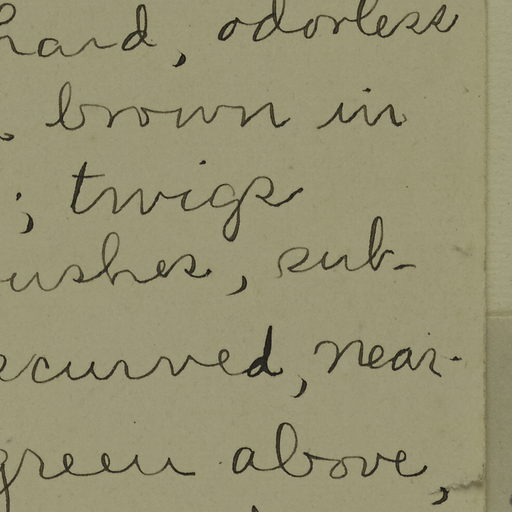 hard, odorless
brown in
; twigs
ushes, sub-
ecurved, near-
green above,